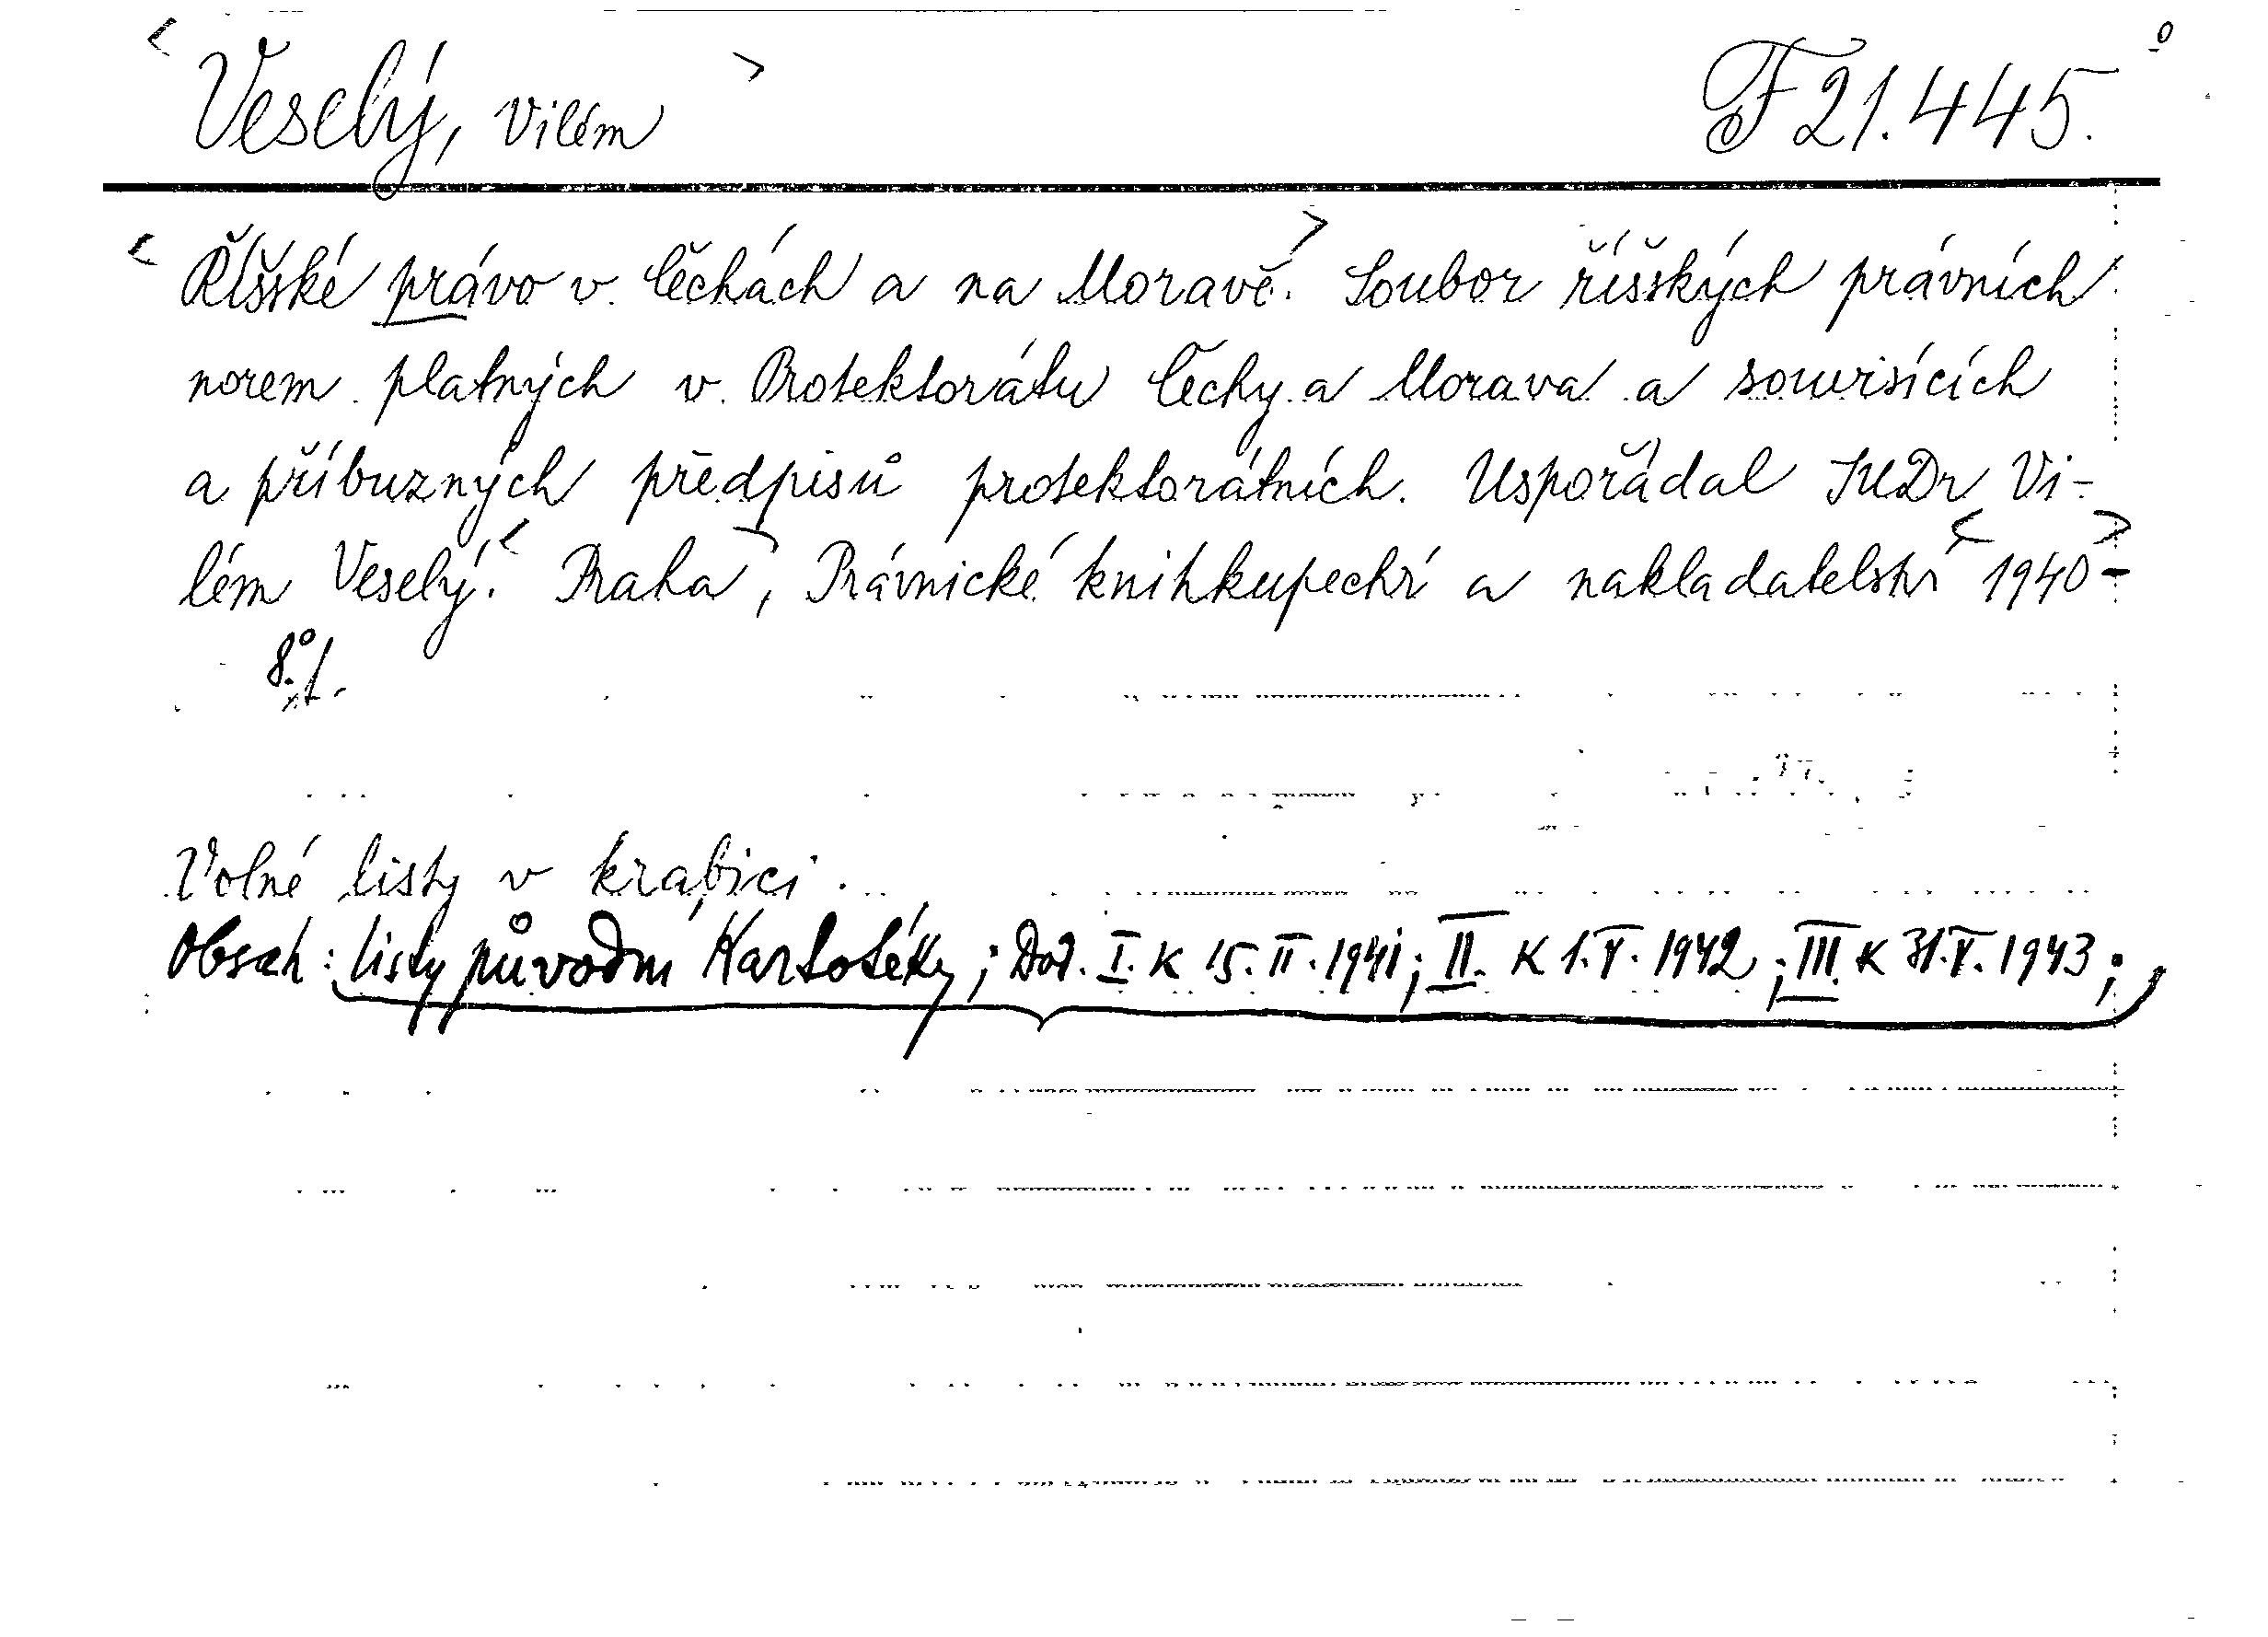 < Veselý, Vilém > F 21.445.
< Říšské právo v Čechách a na Moravě.> Soubor říšských právních
norem platných v Protektorátu Čechy a Morava a souvisících
a příbuzných předpisů protektorátních. Uspořádal JUDr Vi-
lém Veselý. < Praha >, Právnické knihkupectví a nakladatelství < 1940 > -
8°.
Volné listy v krabici.
Obsah: listy původní Kartotéky; Dod. I. K 15. II. 1941; II. K 1. V. 1942; III. K 31. V. 1943;